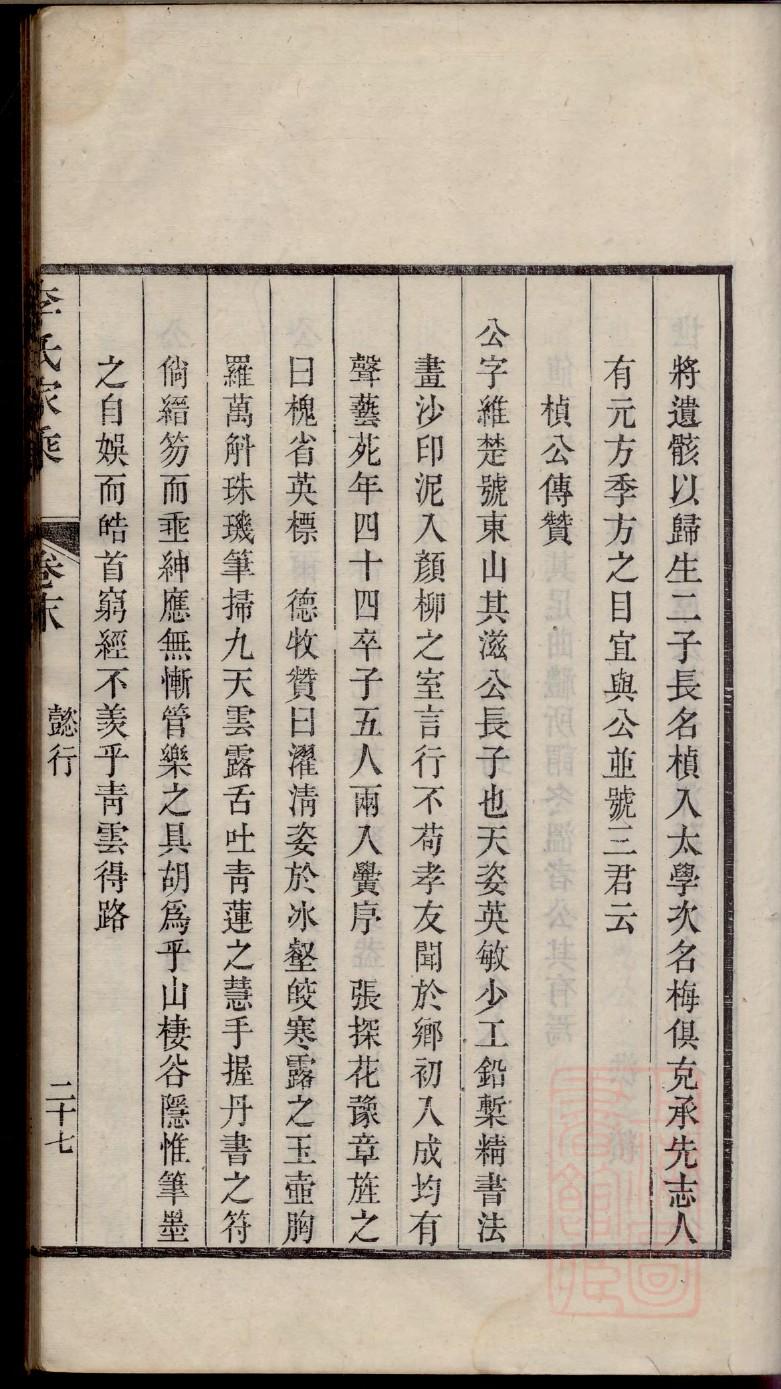 將遺骸以歸生二子長名楨入太學次名梅俱克承先志人
有元方季方之目宜與公並號三君云
楨公傳贊
公字維楚號東山其滋公長子也天姿英敏少工鉛槧精書法
畫沙印泥入顏柳之室言行不苟孝友聞於鄉初入成均有
聲藝苑年四十四卒子五人兩入黌序 張探花豫章旌之
曰槐省英標 德牧贊曰濯淸姿於冰壑皎寒露之玉壺胸
羅萬斛珠璣筆掃九天雲露舌吐靑蓮之慧手握丹書之符
倘縉笏而垂紳應無慚管樂之具胡爲乎山棲谷隱惟筆墨
之自娛而皓首窮經不羨乎靑雲得路
李氏家乘 卷末 懿行 二十七